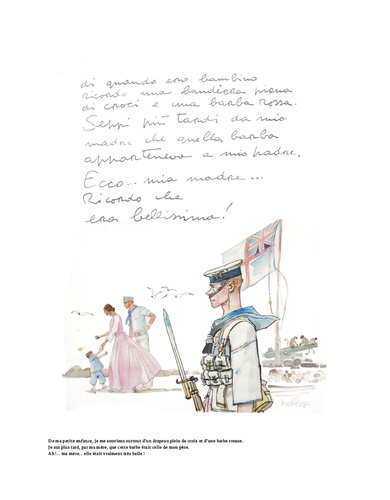 di quando ero bambino
ricordo una bandiera piena
di croci e una barba rossa.
Seppi più tardi da mio
madre che quella barba
apparteneva a mio padre.
Ecco... mia madre...
Ricordo che
era bellissima!
De ma petite enfance, je me souviens surtout d'un drapeau plein de croix et d'une barbe rousse.
Je sus plus tard, par ma mère, que cette barbe était celle de mon père.
Ah !... ma mère... elle était vraiment très belle !